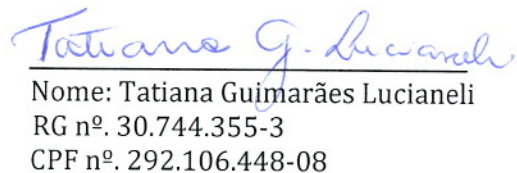 Tatiana G. Lucianeli
Nome: Tatiana Guimarães Lucianeli
RG nº. 30.744.355-3
CPF nº. 292.106.448-08